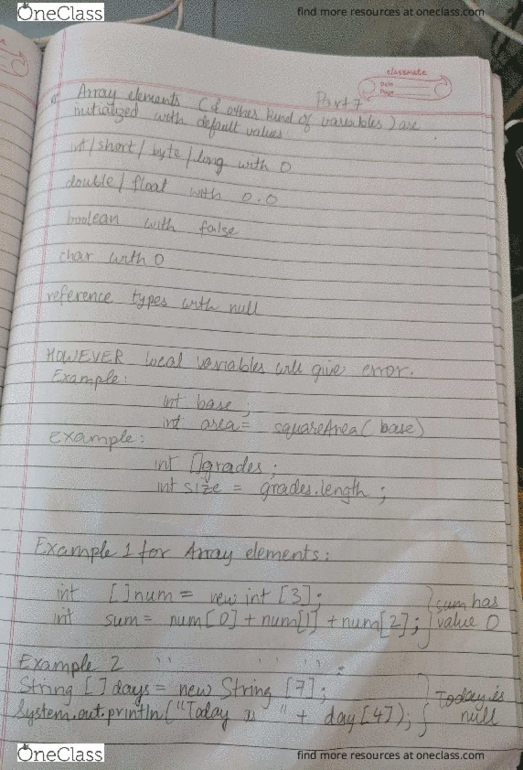 OneClass
find more resources at oneclass.com
classmate
Date
Page
Part 7
Array elements (& other kind of variables) are
initialized with default values
int/short/byte/long with 0
double/float with 0.0
boolean with false
char with 0
reference types with null
HOWEVER local variables will give error.
Example:
int base;
int area= squareArea( base)
Example:
int []grades;
int size = grades.length;
Example 1 for Array elements:
int []num = new int [3];
int sum = num[0]+num[1]+num[2];
sum has
value 0
Example 2 " " " " :
String [] days = new String [7];
System.out.println("Today is " + day[4]);
Today is
null
OneClass
find more resources at oneclass.com